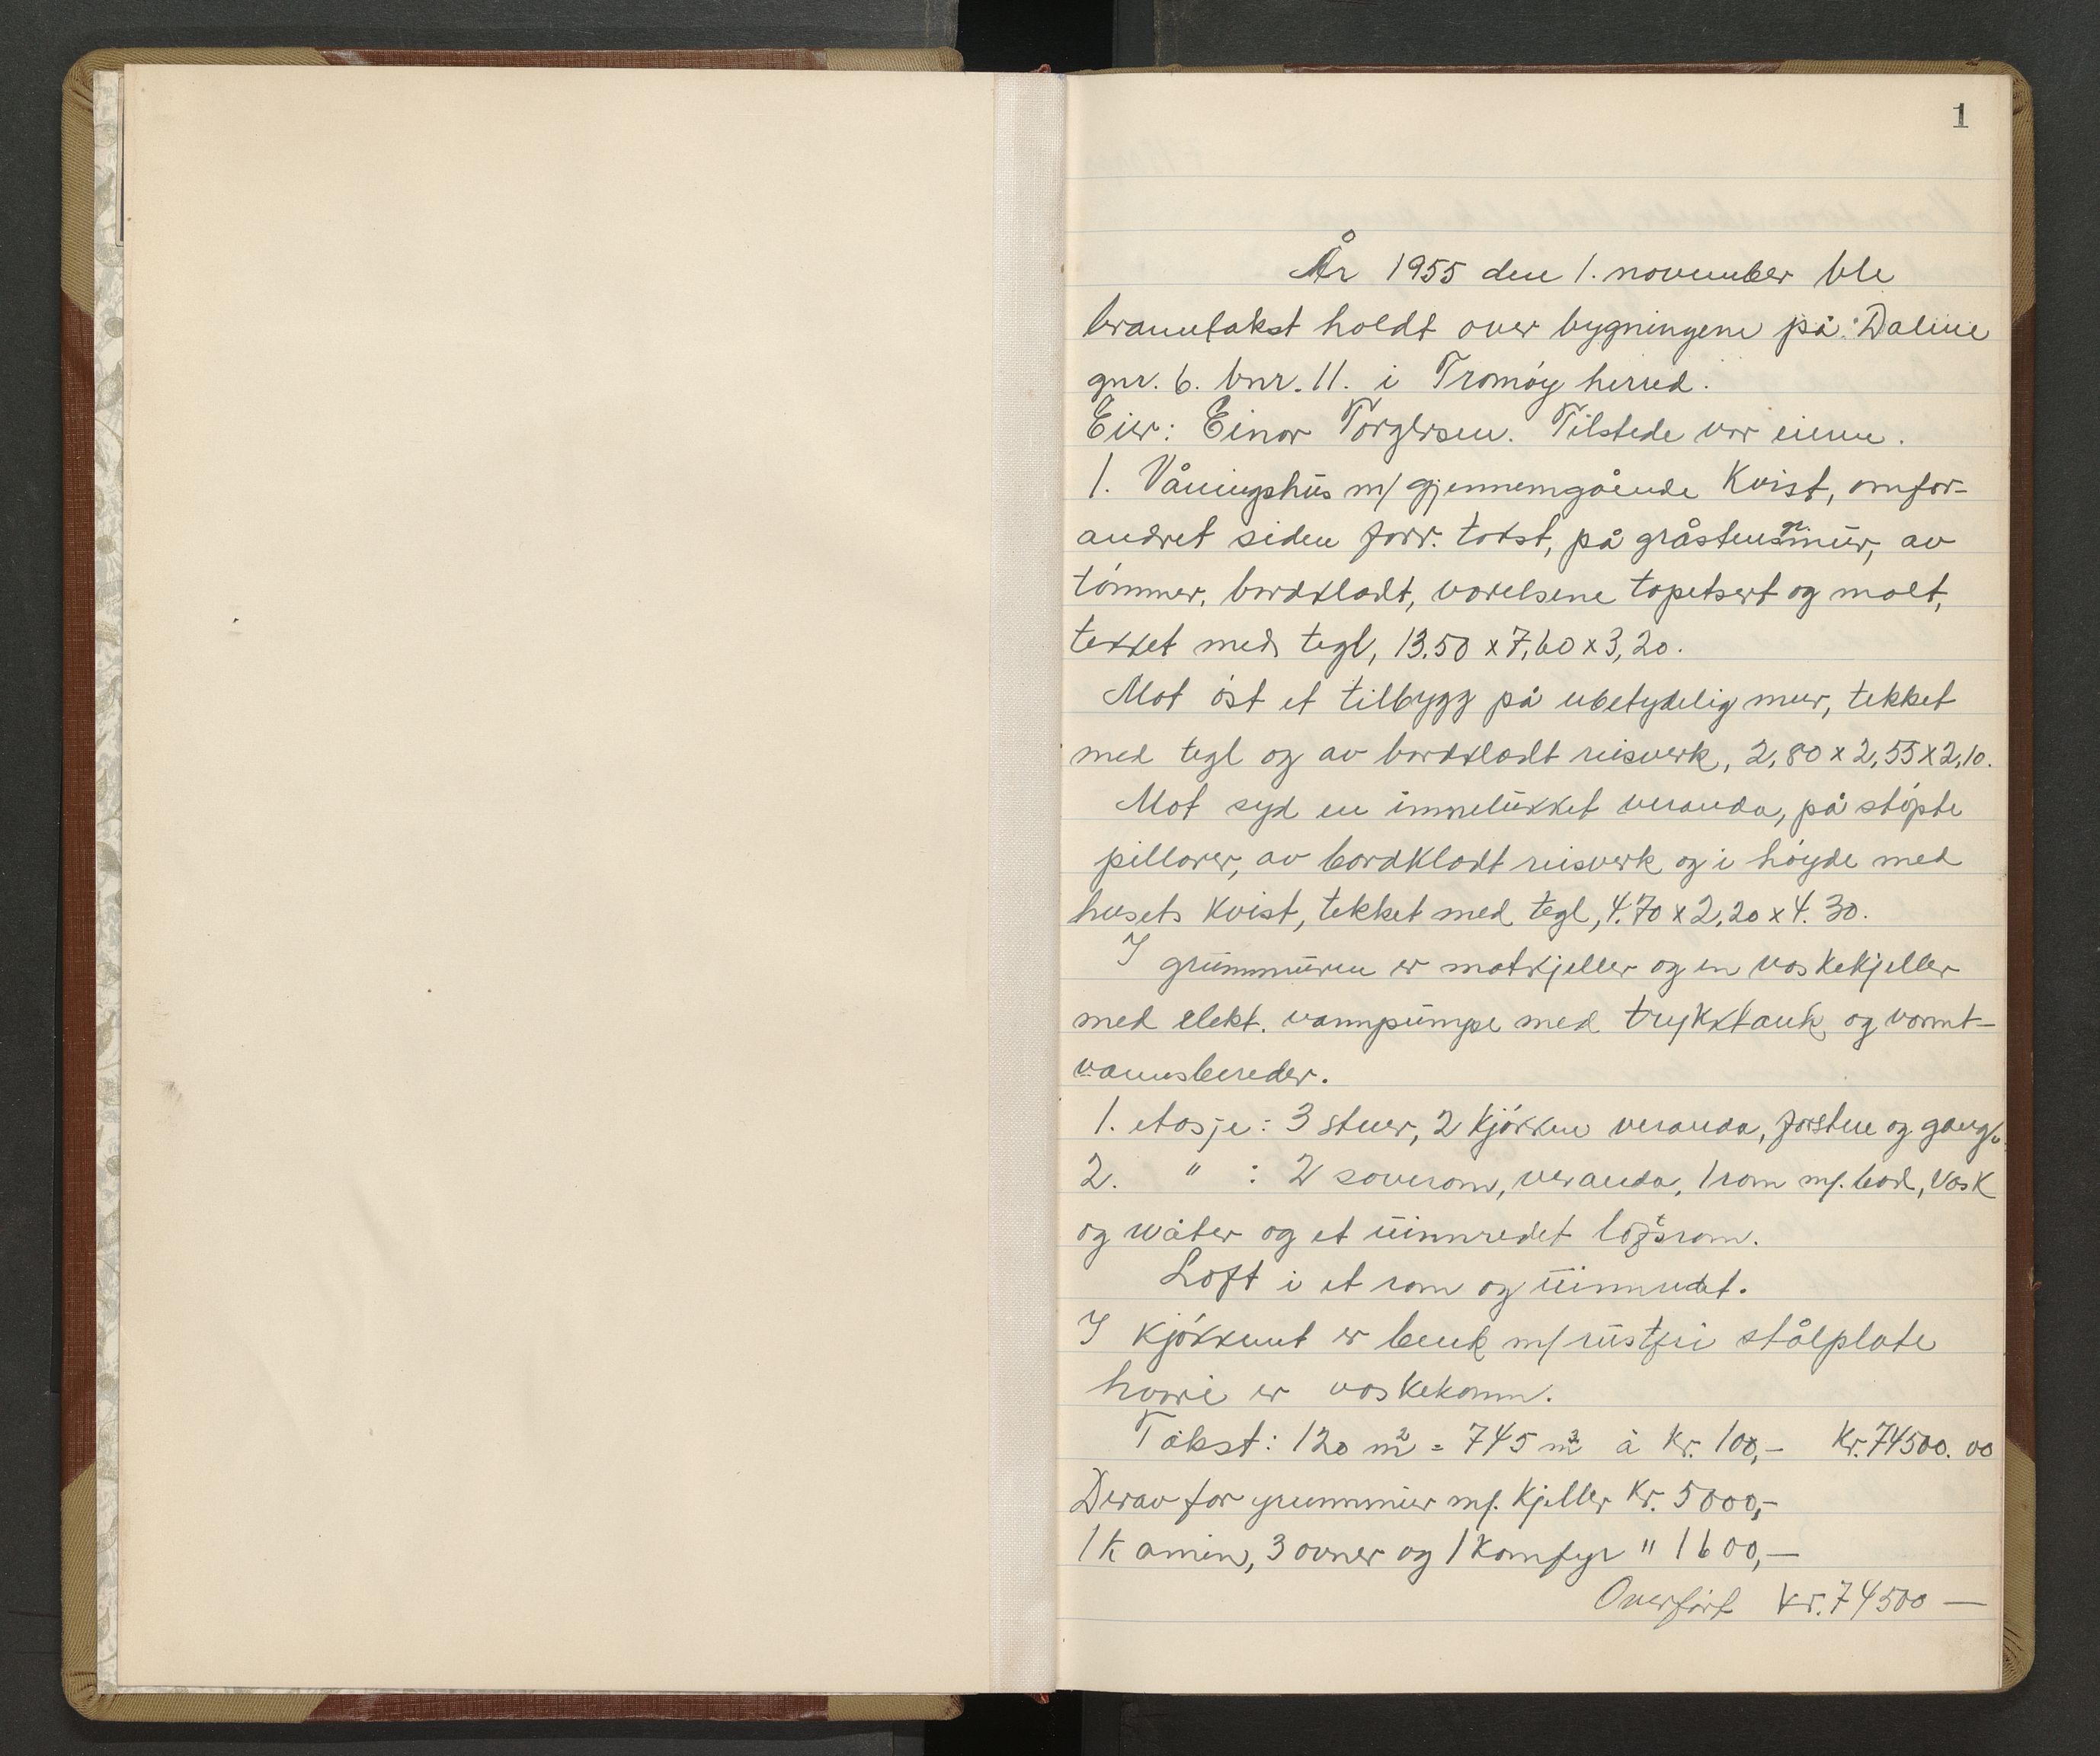 1
År 1955 den 1. november ble
branntakst holdt over bygningene på: Daline
gnr. 6. bnr. 11. i Tromøy herred.
Eier: Einar Torgersen. Tilstede var eieren.
1. Våningshus m/ gjennemgående Kvist, omfor-
andret siden forr. takst, på gråstensgr.mur, av
tømmer, bordkladt, værelsene tapetsert og malt,
tekket med tegl, 13.50 x 7,60 x 3,20.
Mot øst et tilbygg på ubetydelig mur, tekket
med tegl og av bordkladt reisverk, 2,80 x 2,55 x 2,10.
Mot syd en innelukket veranda, på støpte
pillarer, av bordkladt reisverk og i høyde med
husets Kvist, tekket med tegl, 4.70 x 2,20 x 4.30.
I grunnmuren er matkjeller og en vaskekjeller
med elekt. vannpumpe med trykktank og varmt-
vannsbereder.
1. etasje: 3 stuer, 2 kjøkken veranda, forstue og gang
2. " : 2 soverom, veranda, 1 rom m/. bad, vask
og wåter og et uinnredet loftsrom.
Loft i et rom og uinnredet.
I kjøkkenet er benk m/ rustfri stålplate
hvori er vaskekomm.
Takst: 120 m² = 745 m³ à kr. 100,- Kr. 74500.00
Derav for grunnmur m/. kjeller Kr. 5000,-
1 Kamin, 3 ovner og 1 Komfyr " 1600,-
Overført kr. 74500 —